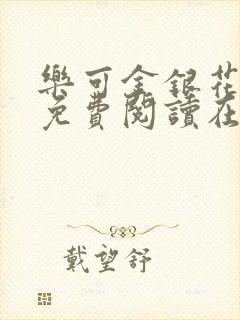 樂可金銀花
免費閱讀在
戴望舒